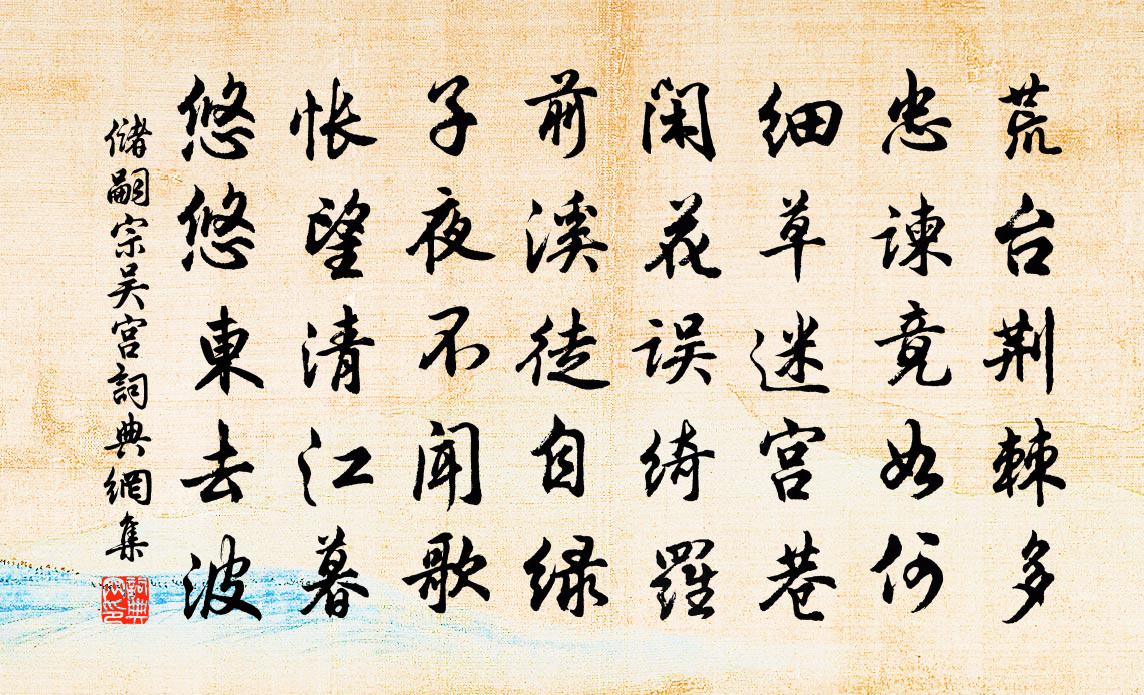 荒台荆棘多
忠谏竟如何
细草迷宫巷
闲花误绮羅
前溪徒自绿
子夜不闻歌
怅望清江暮
悠悠東去波
儲嗣宗吴宫詞典網集
詞典